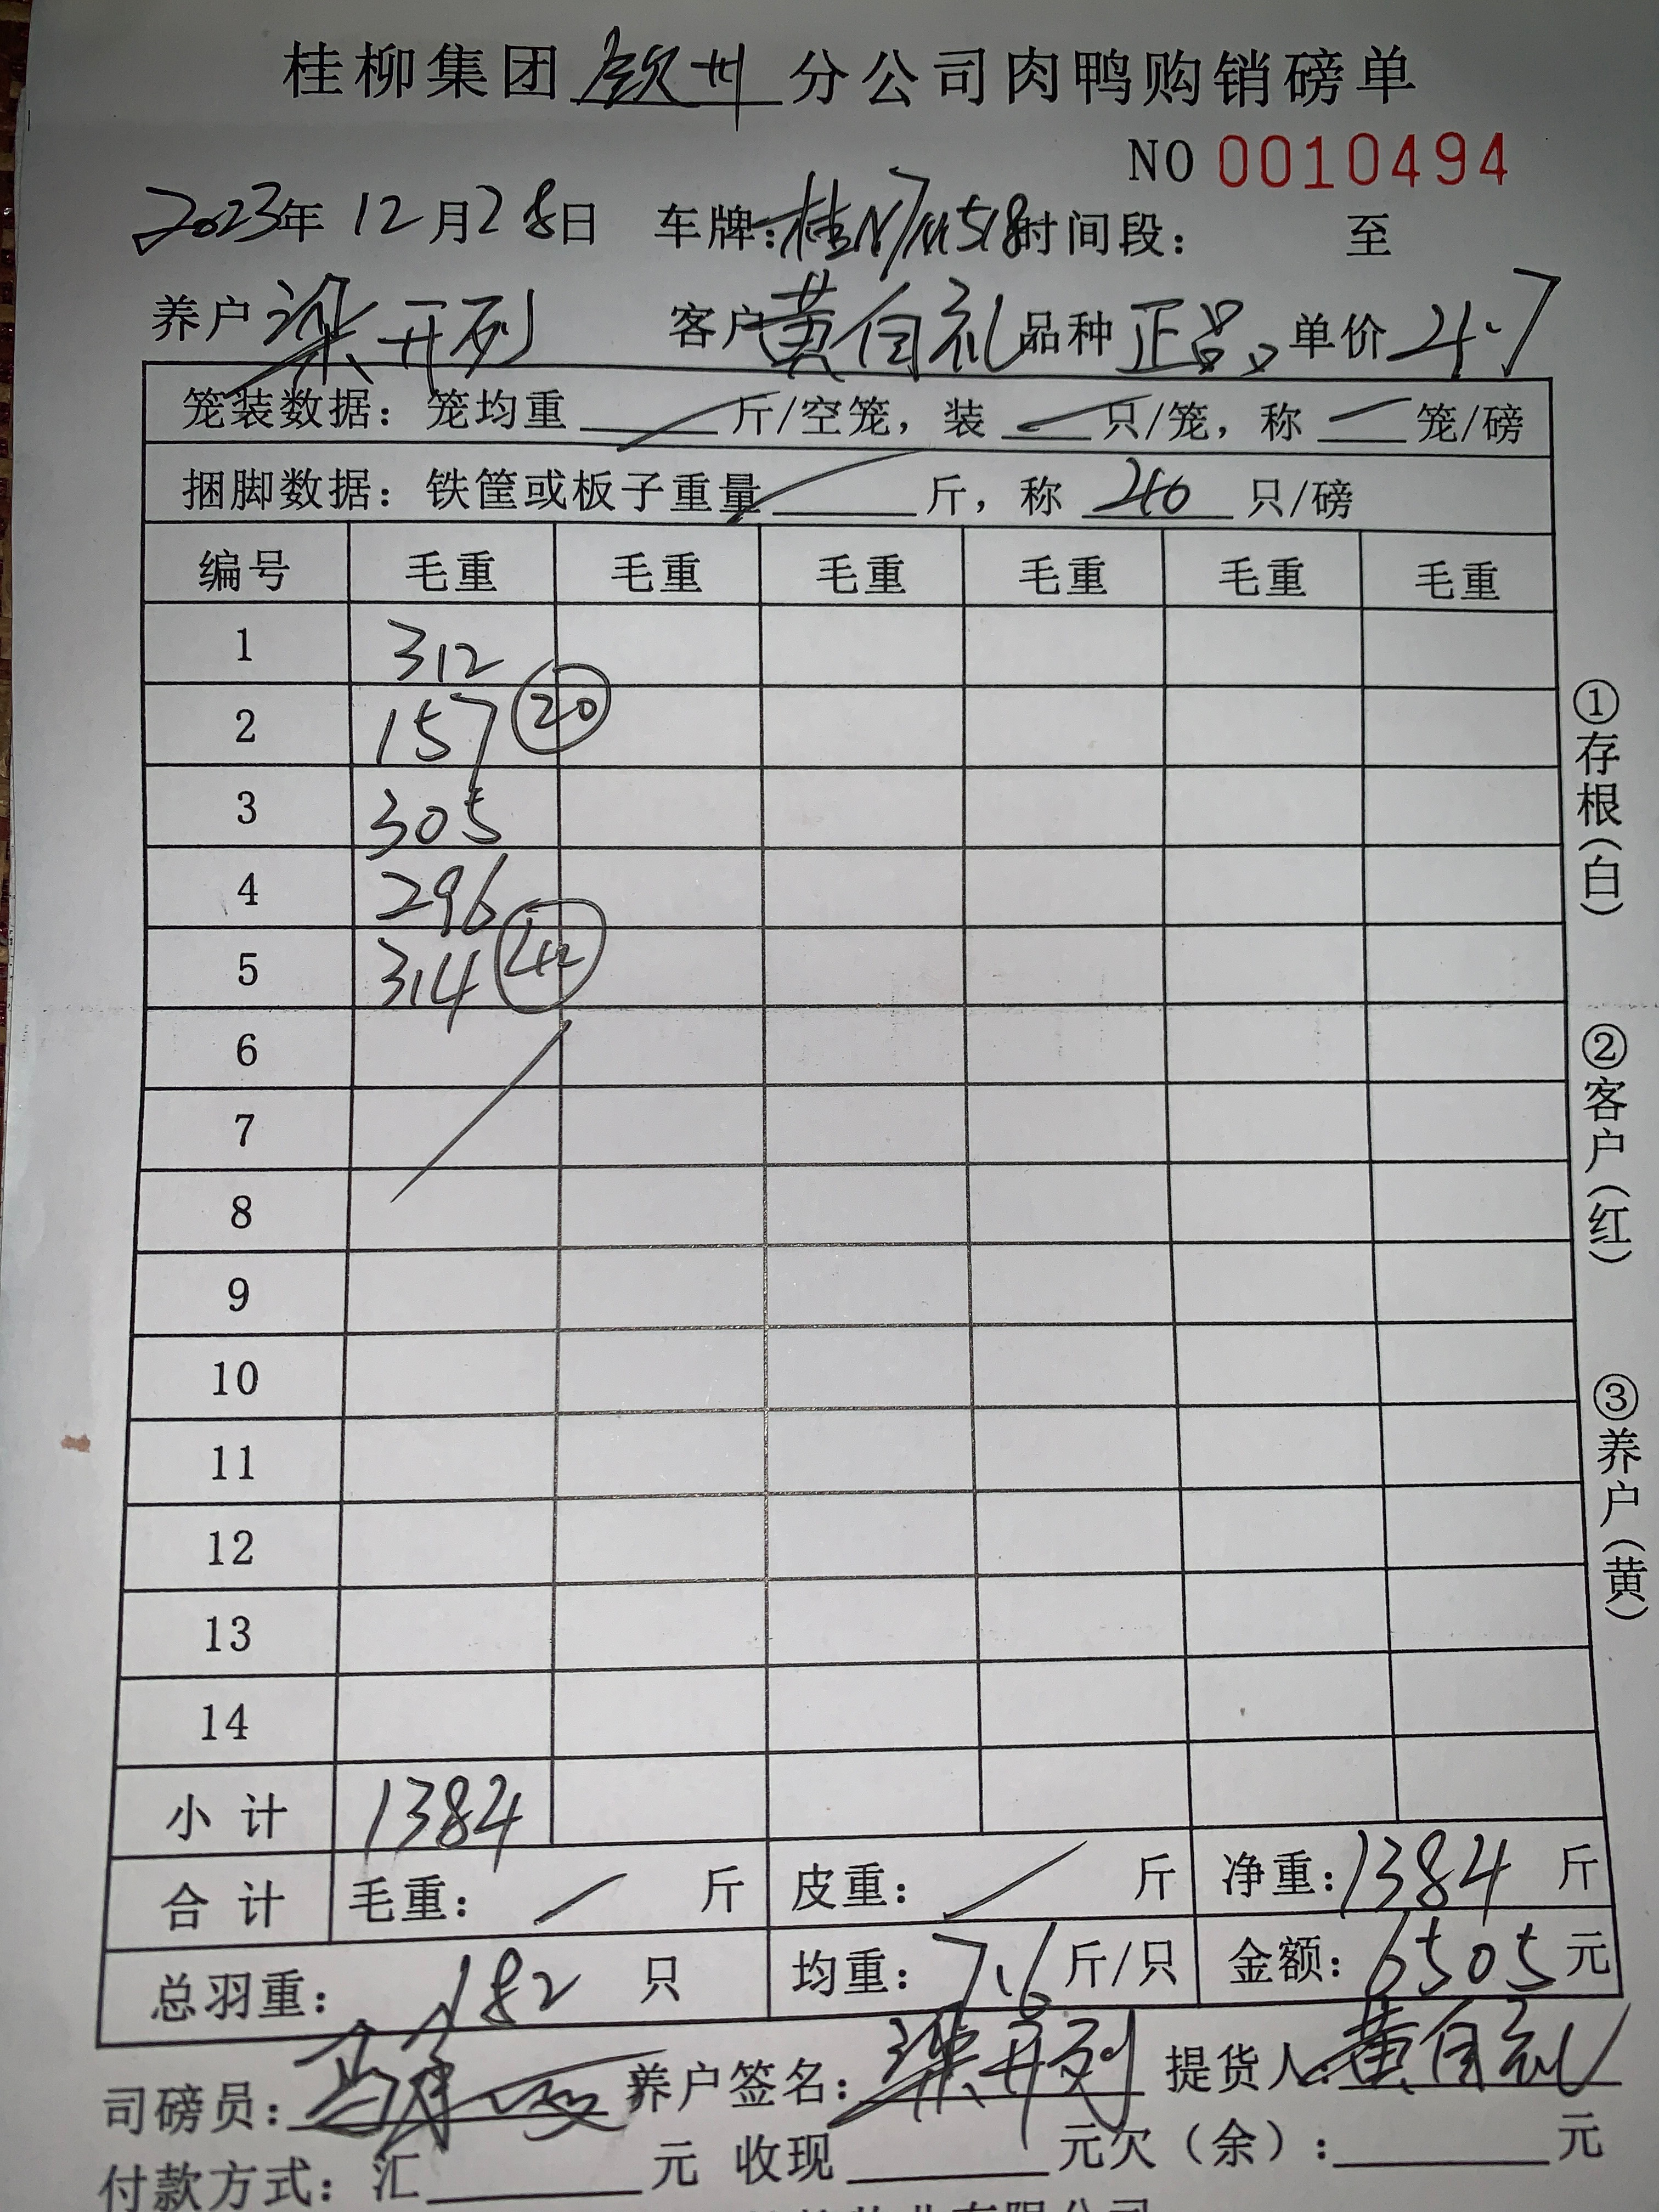 桂柳集团钦州分公司肉鸭购销磅单
NO 0010494
2023年12月28日 车牌:桂N 518时间段: 至
养户 梁开列 客户黄自礼品种 正品 单价 4.7
笼装数据:笼均重 / 斤/空笼,装 / 只/笼,称 / 笼/磅
捆脚数据:铁筐或板子重量 / 斤,称 40 只/磅
编号 毛重 毛重 毛重 毛重 毛重 毛重
1 312
2 157 20
3 305
4 296
5 314 42
6
7
8
9
10
11
12
13
14
小计 1384
合计 毛重: / 斤 皮重: / 斤 净重:1384 斤
总羽重: 182 只 均重:7.6斤/只 金额:6505元
司磅员: 养户签名:梁开列 提货人:黄自礼
付款方式:汇 元 收现 元欠(余): 元
①存根(白)
②客户(红)
③养户(黄)